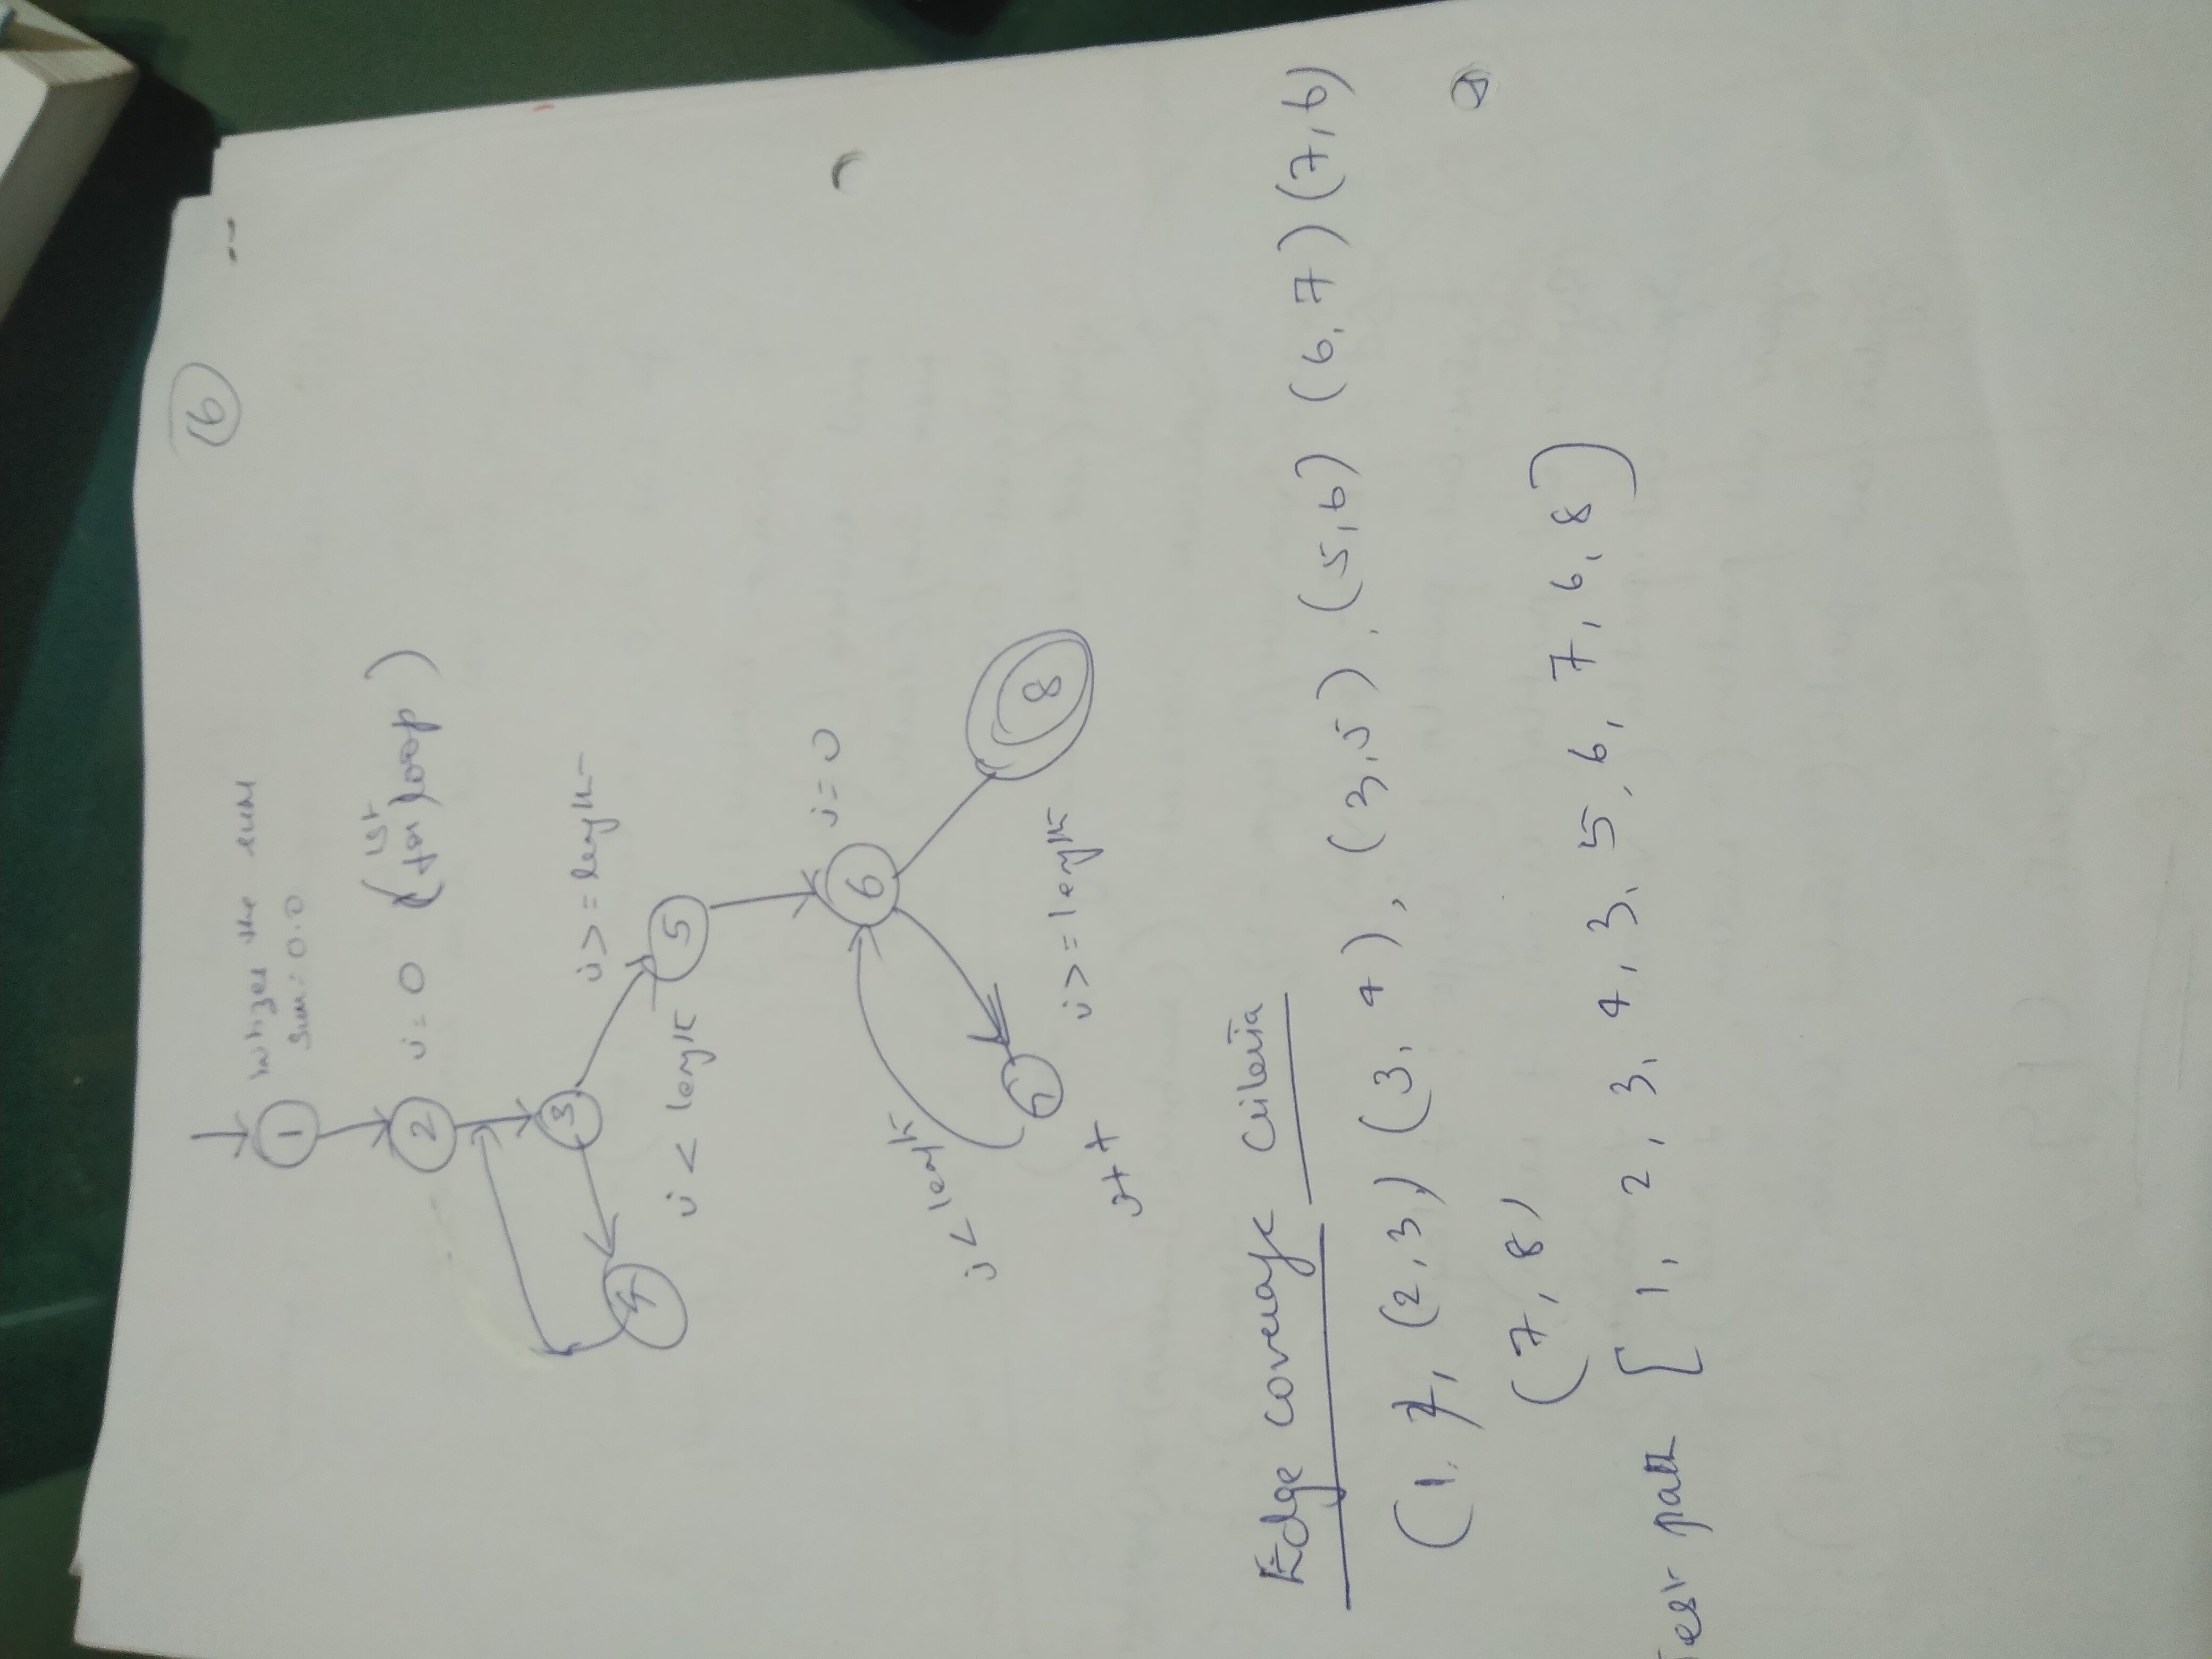 16
1 the sum
sum = 0.0
2 i = 0 ( 1st for loop )
3
i >= length
4
i < length 5
i = 0
6
j < length
7
8
i >= length
Edge coverage Criteria
(1, 2, (2, 3,) (3, 4), (3,5), (5,6) (6, 7) (7,6)
(7, 8)
Test path [ 1, 2, 3, 4, 3, 5, 6, 7, 6, 8 ]